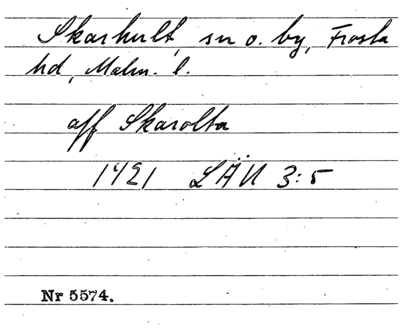 Skarhult, sn o. by, Frosta
hd, Malm. l.
aff Skarolta
1421 LÄU 3:5
Nr 5574.